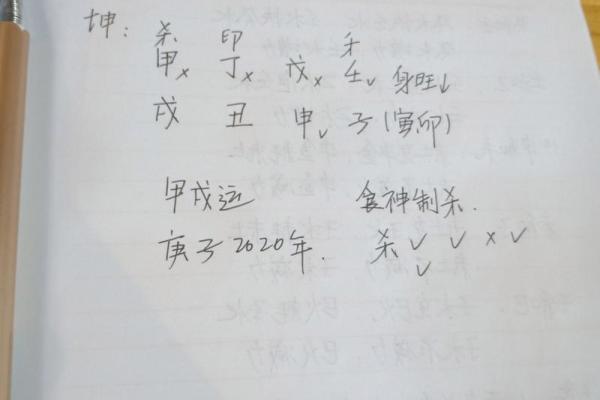 坤： 杀 印 才
甲× 丁× 戊× 壬✓ 身旺↓
戌 丑 申✓ 子(寅卯)
甲戌运 食神制杀.
庚子2020年. 杀✓ ✓ × ✓
✓